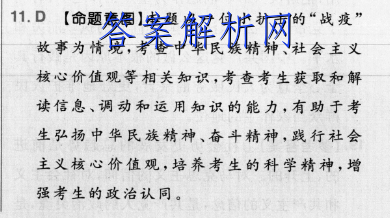 11.D 【命题意图】 的“战疫”
答案解析网
故事为情境,考查中华民族精神、社会主义
核心价值观等相关知识,考查考生获取和解
读信息、调动和运用知识的能力,有助于考
生弘扬中华民族精神、奋斗精神,践行社会
主义核心价值观,培养考生的科学精神,增
强考生的政治认同。